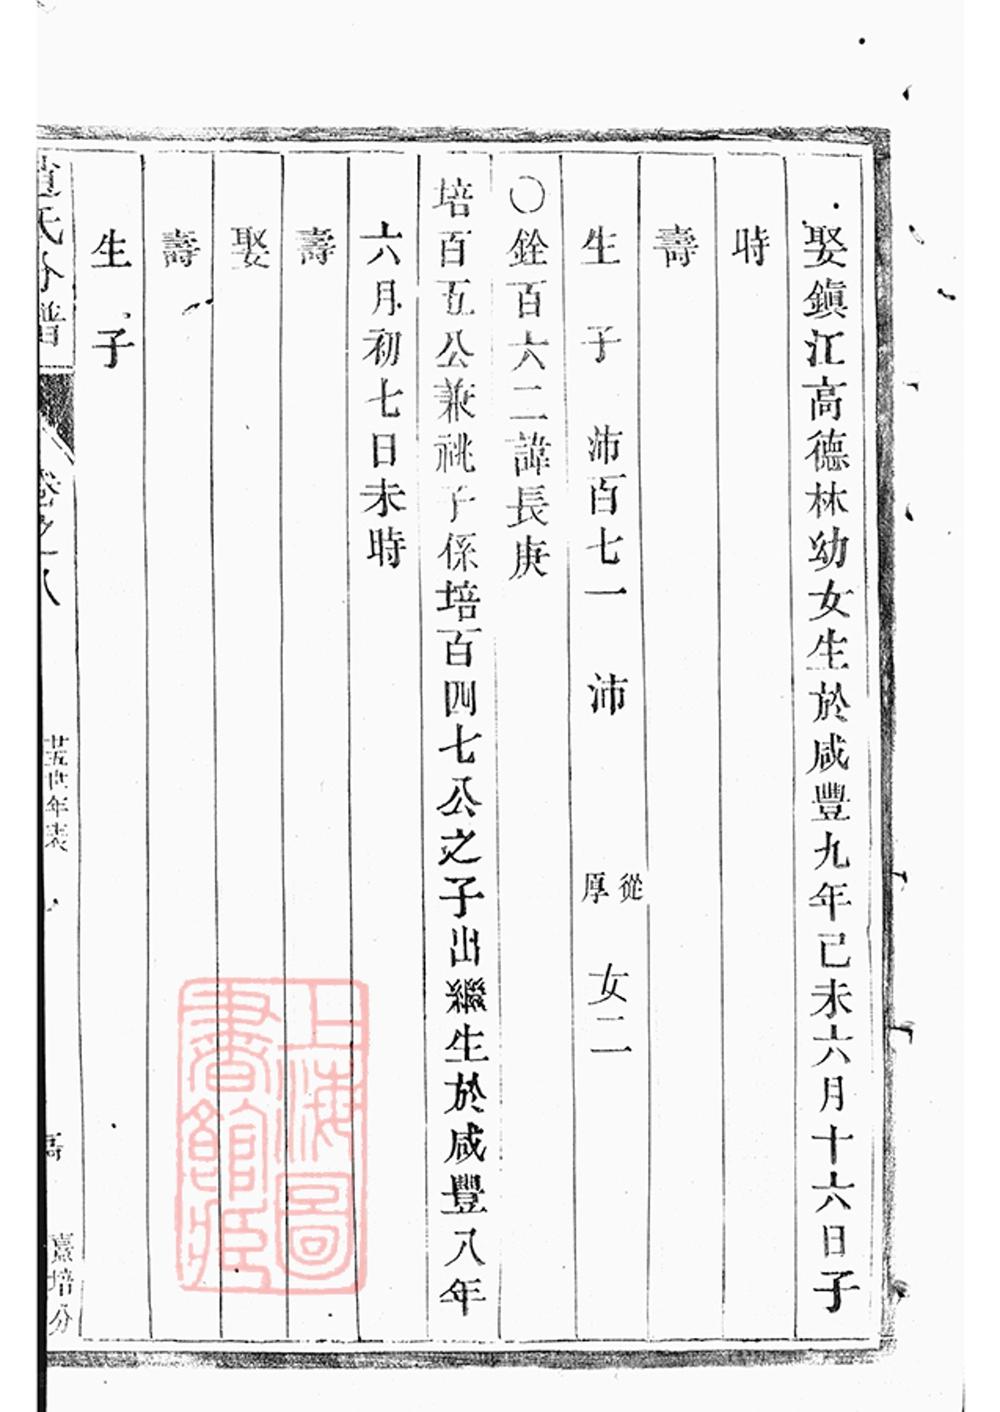 娶鎭江高德林幼女生於咸豐九年己未六月十六日子
時
壽
生　子　沛百七一　沛　從厚　女二
〇銓百六二諱長庚
培百五公兼祧子係培百四七公之子出繼生於咸豐八年
六月初七日未時
壽
娶
壽
生　子
趙氏分譜
卷之十八
廿五世年表
熹培分
上海圖書館藏